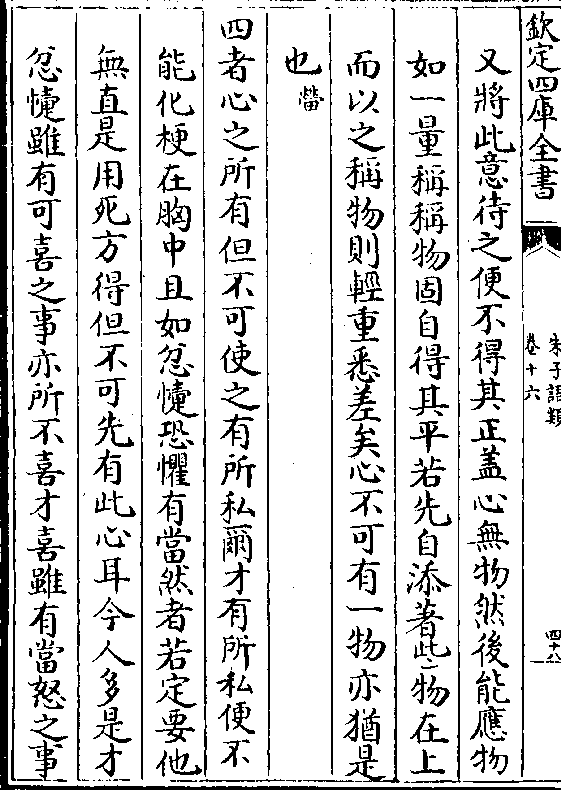 欽定四庫全書
朱子語類
卷十六
四十八
又將此意待之便不得其正蓋心無物然後能應物
如一量稱稱物固自得其平若先自添著些物在上
而以之稱物則輕重悉差矣心不可有一物亦猶是
也㽦
四者心之所有但不可使之有所私爾才有所私便不
能化梗在胸中且如忿懥恐懼有當然者若定要他
無直是用死方得但不可先有此心耳今人多是才
忿懥雖有可喜之事亦所不喜才喜雖有當怒之事